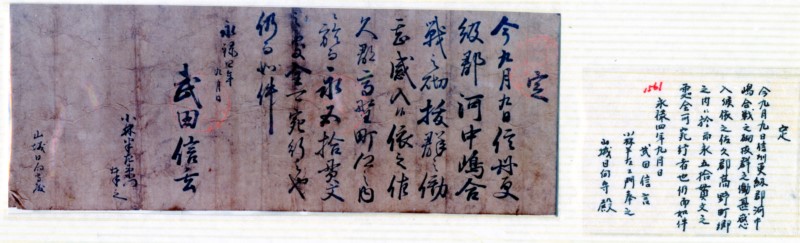 定
今九月九日信州更
級郡河中嶋合
戦之砌抜群之働
甚感入候依之佐
久郡高野町郷之内
於而永五拾貫文
之処全可宛行者也
仍而如件
永禄四年
九月日
武田信玄
小林
奉之
山城日向守殿
定
今九月九日信州更級郡河中
嶋合戦之砌抜群之働甚感
入候依之佐久郡高野町郷
之内ニ於而永五拾貫文之
処全可宛行者也仍而如件
1561
永禄四年九月日
武田信玄
小林 門奉之
山城日向守殿